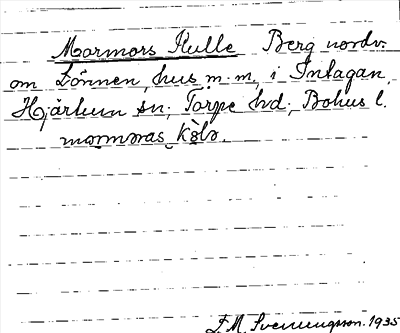 Mormors Kulle Berg nordv.
om Lönnen, hus m.m., i Intagan,
Hjärtum sn; Torpe hd; Bohus l.
mormoras
E.M. Svenungsson. 1935